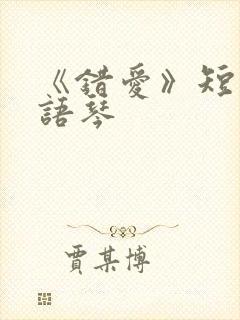 《錯愛》短
語琴
賈某博